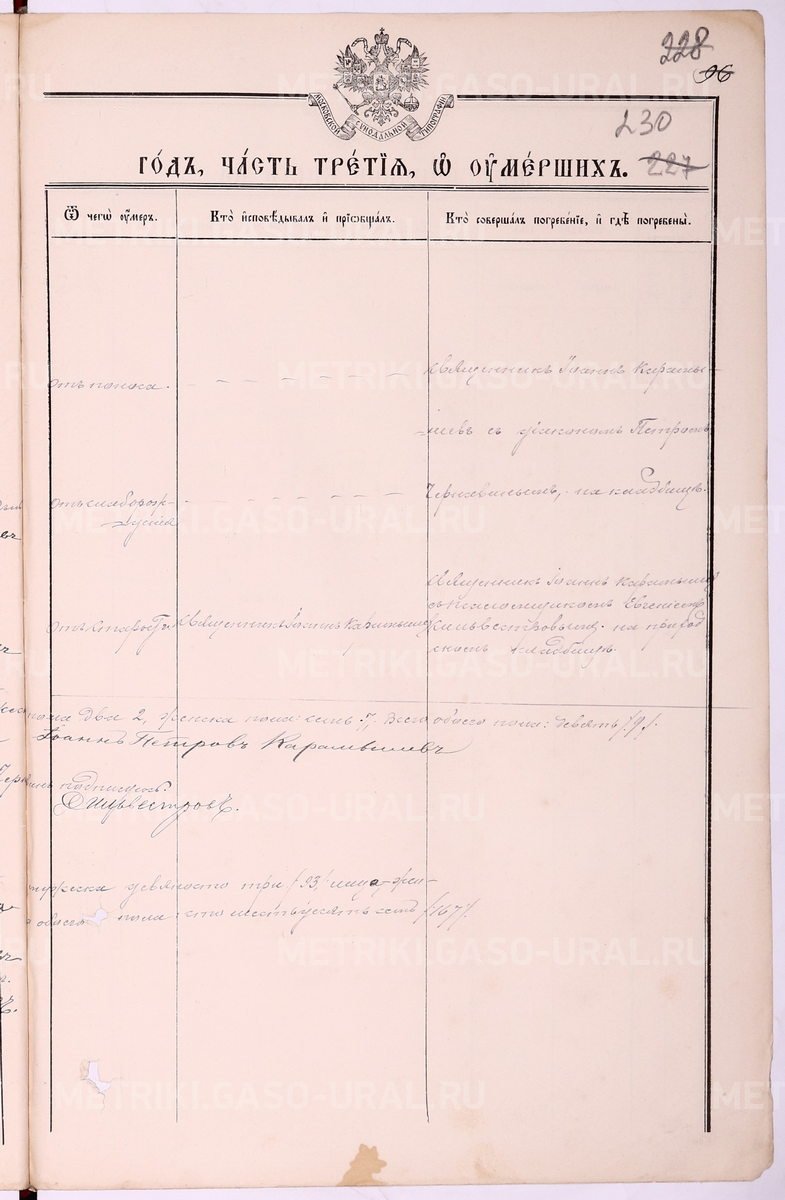 228
96
МОСКОВСКОЙ СѴНОДАЛЬНОЙ ТИПОГРАФІИ
230
ГО́ДЪ, ЧА́СТЬ ТРЕ́ТІѦ, Ѡ҆ ОУ҆МЕ́РШИХЪ.
227
Ѿ чегѡ̀ оу҆́меръ.
Кто̀ и҆сповѣ́дывалъ и҆ прїѡбща́лъ.
Кто̀ соверша́лъ погребе́нїе, и҆ гдѣ̀ погребены̀.
отъ поноса.
Священникъ Іоаннъ Карамы-
шевъ съ діакономъ Петромъ
отъ слаборож-
денія
Чернавинымъ, на кладбищѣ.
отъ старости
Священникъ Іоаннъ Карамышевъ
Священникъ Іоаннъ Карамышевъ
съ псаломщикомъ Евгеніемъ
Сильвестровымъ. на приход
скомъ кладбищѣ.
пола два 2, женска пола: семь 7, Всего обоего пола: девять /9/.
Іоаннъ Петровъ Карамышевъ
подписуюсь.
Сильвестровъ.
мужеска девяносто три /93/ жен-
обоего пола сто шестьдесятъ семь /167/.
METRIKI.GASO-URAL.RU